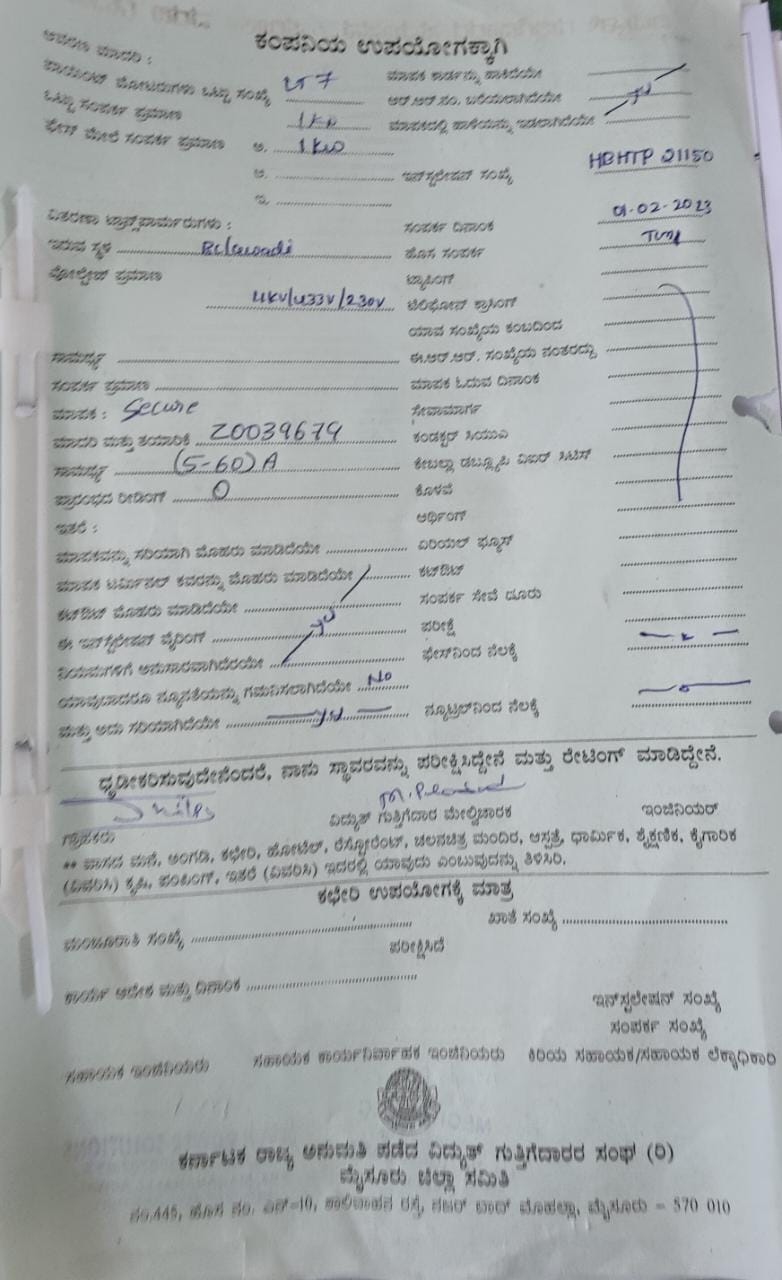 ಕಂಪನಿಯ ಉಪಯೋಗಕ್ಕಾಗಿ
ಮಾದರಿ :
ಪಾಯಿಂಟ್ ಒಟ್ಟು ಸಂಖ್ಯೆ
ಒಟ್ಟು ಸಂಪರ್ಕ ಪ್ರಮಾಣ 1KW
ಸಂಪರ್ಕ ಪ್ರಮಾಣ ಅ. 1KW
ಇನ್‌ಸ್ಟಲೇಷನ್ ಸಂಖ್ಯೆ HBHTP 21150
ವಿತರಣಾ ಟ್ರಾನ್ಸ್‌ಫಾರ್ಮರುಗಳು : ಸಂಪರ್ಕ ದಿನಾಂಕ 01-02-2023
ಇರುವ ಸ್ಥಳ Belawadi ಹೊಸ ಸಂಪರ್ಕ
ವೋಲ್ಟೇಜ್ ಪ್ರಮಾಣ ಟ್ಯಾಪಿಂಗ್
11KV/433V/230V ಟೆಲಿಫೋನ್ ಕ್ರಾಸಿಂಗ್
ಯಾವ ಸಂಖ್ಯೆಯ ಕಂಬದಿಂದ
ಸಾಮರ್ಥ್ಯ ಈ.ಆರ್.ಆರ್. ಸಂಖ್ಯೆಯ ನಂತರದ್ದು
ಸಂಪರ್ಕ ಪ್ರಮಾಣ ಮಾಪಕ ಓದುವ ದಿನಾಂಕ
ಮಾಪಕ : Secure ಸೇವಾಮಾರ್ಗ
ಮಾದರಿ ಮತ್ತು ತಯಾರಿಕೆ Z0039679
ಸಾಮರ್ಥ್ಯ (5-60) A
ಪ್ರಾರಂಭದ ರೀಡಿಂಗ್ 0 ಕೊಳವೆ
ಇತರೆ : ಅರ್ಥಿಂಗ್
ಮಾಪಕವನ್ನು ಸರಿಯಾಗಿ ಮೊಹರು ಮಾಡಿದೆಯೇ ಏರಿಯಲ್ ಫ್ಯೂಸ್
ಮಾಪಕ ಟರ್ಮಿನಲ್ ಕವರನ್ನು ಮೊಹರು ಮಾಡಿದೆಯೇ ಕಟ್‌ಔಟ್
ಕಟ್‌ಔಟ್ ಮೊಹರು ಮಾಡಿದೆಯೇ ಸಂಪರ್ಕ ಸೇವೆ ದೂರು
ಈ ಇನ್‌ಸ್ಟಲೇಷನ್ ವೈರಿಂಗ್ ಪರೀಕ್ಷೆ
ನಿಯಮಗಳಿಗೆ ಅನುಸಾರವಾಗಿದೆಯೇ ಫೇಸ್‌ನಿಂದ ನೆಲಕ್ಕೆ
ಯಾವುದಾದರೂ ನ್ಯೂನತೆಯನ್ನು ಗಮನಿಸಲಾಗಿದೆಯೇ No
ಮತ್ತು ಅದು ಸರಿಯಾಗಿದೆಯೇ ನ್ಯೂಟ್ರಲ್‌ನಿಂದ ನೆಲಕ್ಕೆ
ಧೃಡೀಕರಿಸುವುದೇನೆಂದರೆ, ನಾನು ಸ್ಥಾವರವನ್ನು ಪರೀಕ್ಷಿಸಿದ್ದೇನೆ ಮತ್ತು ರೇಟಿಂಗ್ ಮಾಡಿದ್ದೇನೆ.
ಗ್ರಾಹಕರು ವಿದ್ಯುತ್ ಗುತ್ತಿಗೆದಾರ ಮೇಲ್ವಿಚಾರಕ ಇಂಜಿನಿಯರ್
** ವಾಸದ ಮನೆ, ಅಂಗಡಿ, ಕಛೇರಿ, ಹೋಟೆಲ್, ರೆಸ್ಟೋರೆಂಟ್, ಚಲನಚಿತ್ರ ಮಂದಿರ, ಆಸ್ಪತ್ರೆ, ಧಾರ್ಮಿಕ, ಶೈಕ್ಷಣಿಕ, ಕೈಗಾರಿಕ
(ವಿವರಿಸಿ) ಕೃಷಿ, ಪಂಪಿಂಗ್, ಇತರೆ (ವಿವರಿಸಿ) ಇದರಲ್ಲಿ ಯಾವುದು ಎಂಬುವುದನ್ನು ತಿಳಿಸಿರಿ.
ಕಛೇರಿ ಉಪಯೋಗಕ್ಕೆ ಮಾತ್ರ
ಮಂಜೂರಾತಿ ಸಂಖ್ಯೆ ಖಾತೆ ಸಂಖ್ಯೆ
ಪರೀಕ್ಷಿಸಿದೆ
ಕಾರ್ಯ ಆದೇಶ ಮತ್ತು ದಿನಾಂಕ
ಇನ್‌ಸ್ಟಲೇಷನ್ ಸಂಖ್ಯೆ
ಸಂಪರ್ಕ ಸಂಖ್ಯೆ
ಸಹಾಯಕ ಇಂಜಿನಿಯರು ಸಹಾಯಕ ಕಾರ್ಯನಿರ್ವಾಹಕ ಇಂಜಿನಿಯರು ಕಿರಿಯ ಸಹಾಯಕ/ಸಹಾಯಕ ಲೆಕ್ಕಾಧಿಕಾರಿ
ಕರ್ನಾಟಕ ರಾಜ್ಯ ಅನುಮತಿ ಪಡೆದ ವಿದ್ಯುತ್ ಗುತ್ತಿಗೆದಾರರ ಸಂಘ (ರಿ)
ಮೈಸೂರು ಜಿಲ್ಲಾ ಸಮಿತಿ
ನಂ.445, ಹೊಸ ನಂ. ಎನ್-10, ಶಾಲಿವಾಹನ ರಸ್ತೆ, ನಜರ್ ಬಾದ್ ಮೊಹಲ್ಲಾ, ಮೈಸೂರು - 570 010